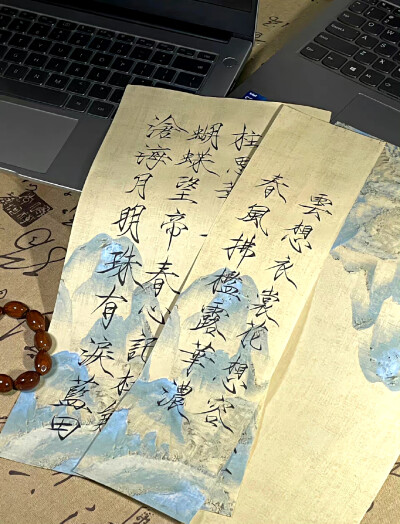 雲想衣裳花想容
春風拂檻露華濃
柱思
蝴蝶望帝春心託杜
滄海月明珠有淚藍田